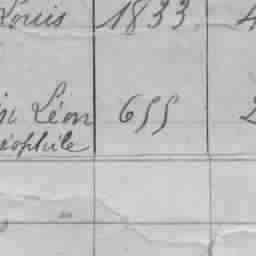 Louis 1833 4
Léon 655 2
éophile